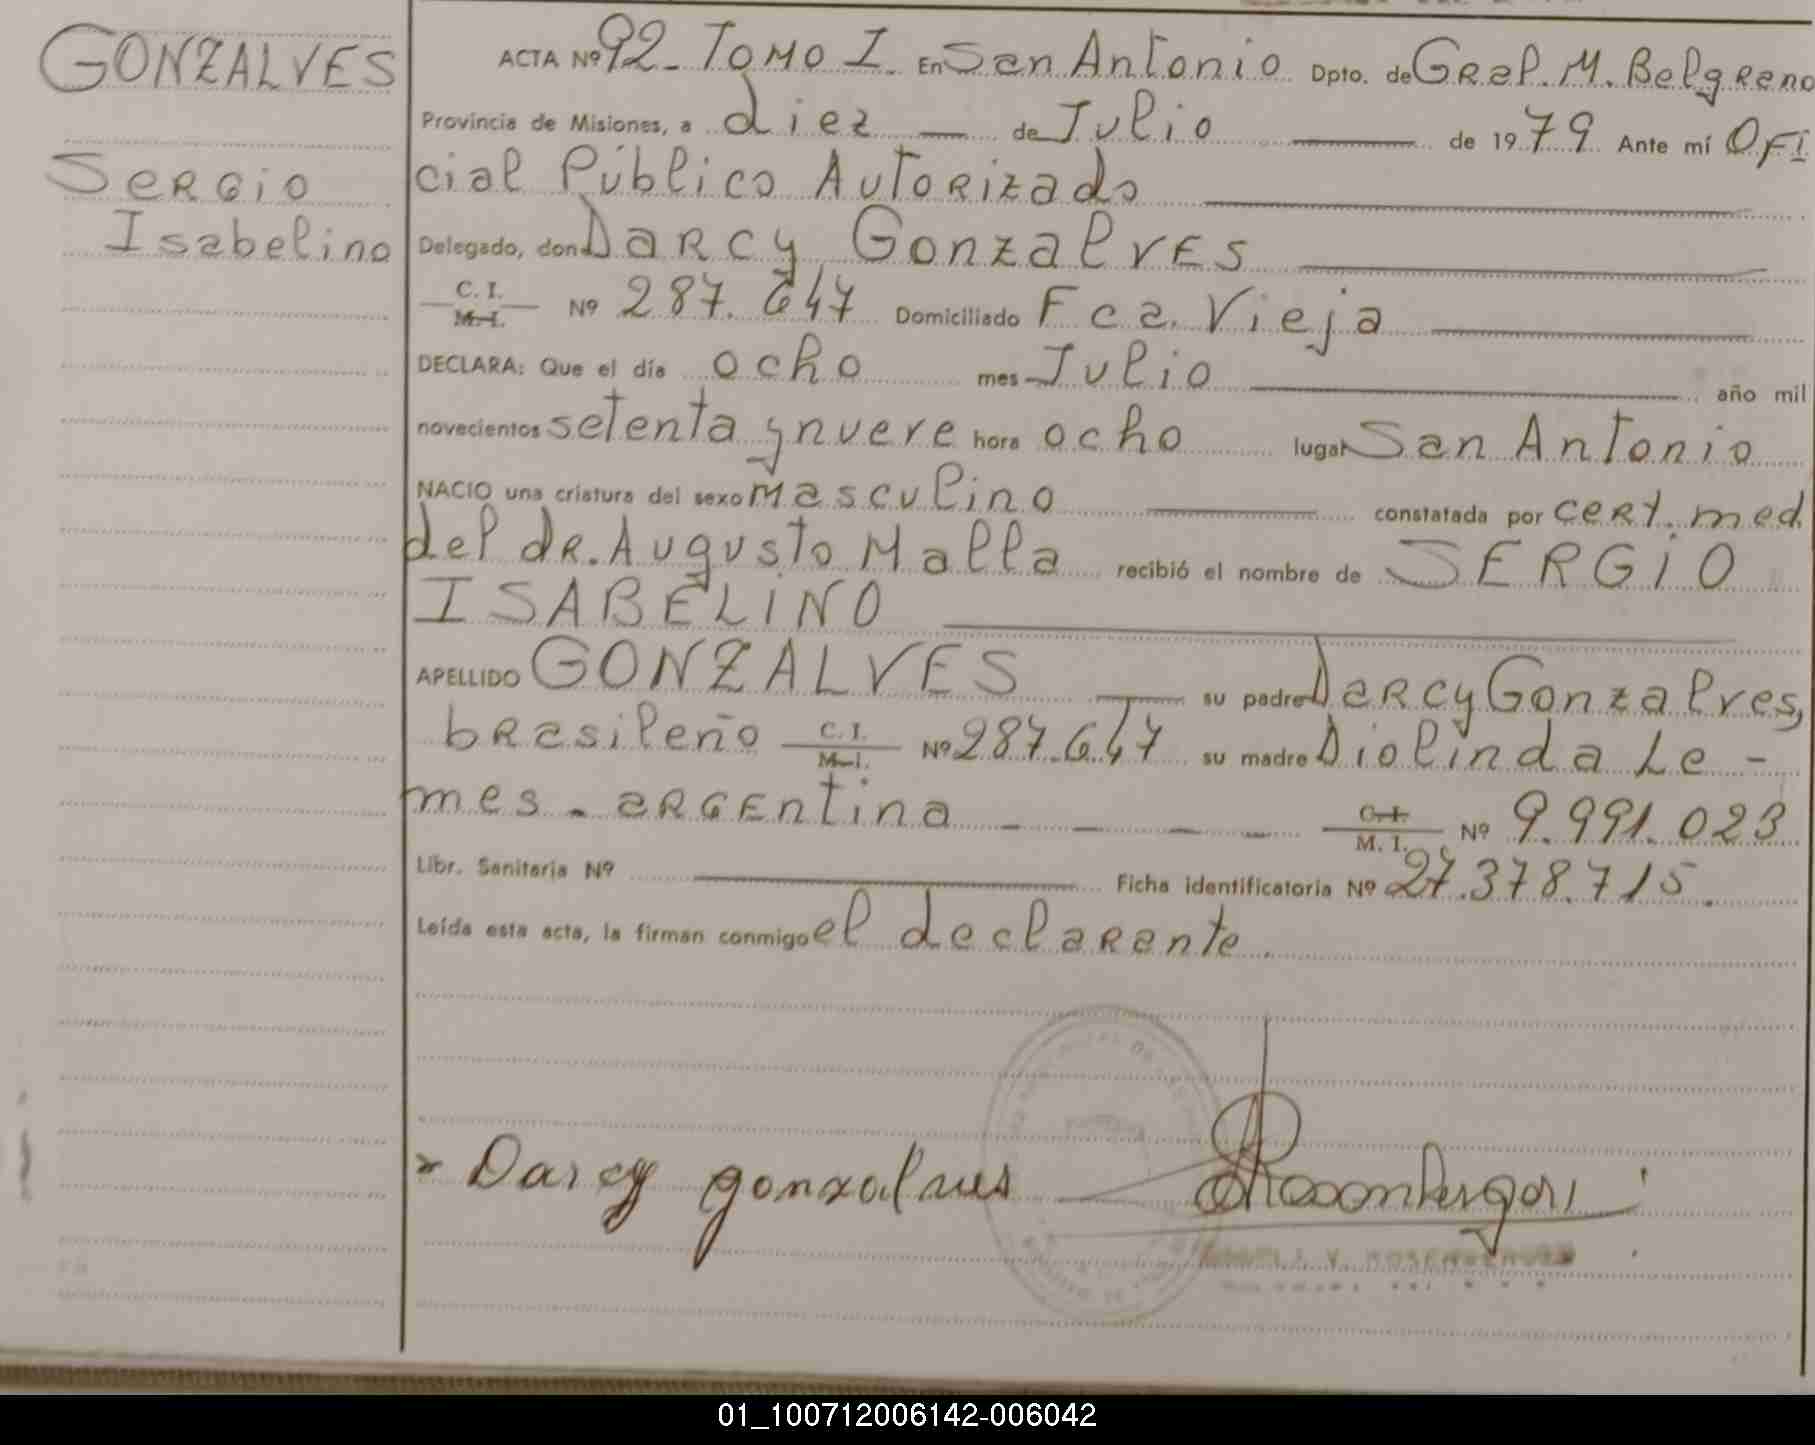 GONZALVES
Sergio
Isabelino
ACTA Nº 92 - Tomo I. En San Antonio Dpto. de Gral. M. Belgrano
Provincia de Misiones, a diez — de Julio — de 1979 Ante mí Ofi
cial Público Autorizado —
Delegado, don Darcy Gonzalves —
C. I. M. I. Nº 287.647 Domiciliado Fca. Vieja —
DECLARA: Que el día ocho mes Julio — año mil
novecientos setenta y nueve hora ocho lugar San Antonio
NACIO una criatura del sexo masculino — constatada por cert. med.
del dr. Augusto Malla recibió el nombre de SERGIO
ISABELINO —
APELLIDO GONZALVES — su padre Darcy Gonzalves,
brasileño C. I. M. I. Nº 287.647 su madre Diolinda Le -
mes - argentina - - - - C. I. M. I. Nº 9.991.023
Libr. Sanitaria Nº — Ficha identificatoria Nº 27.378.715.
Leída esta acta, la firman conmigo el declarante.
Darcy gonzalves
01_100712006142-006042